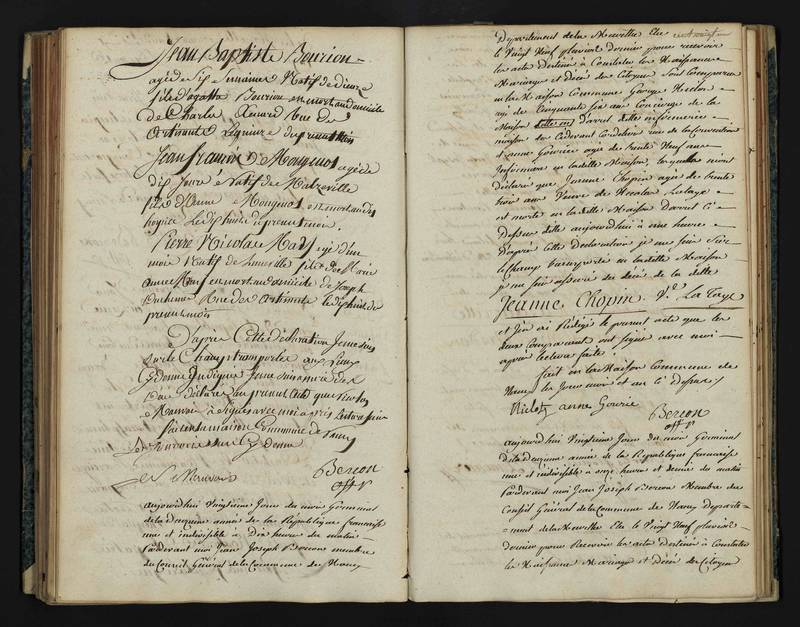 Jean Baptiste Bourion
agé de dix semaines Natif de dieuze
fils d'agathe Bourion est mort au domicile
de Charle Renard Rue de
L'artimont Le quinze du present mois
Jean francois De Monginot agé de
dix Jours Natif de Malzeville
fils d'Anne Monginot est mort audit
hospice Le dix huit de present mois.
Pierre Nicolas Marf agé d'un
mois Natif de Luneville fils de Marie
anne Marf est mort au domicile de Joseph
Duchene Rue de artimont le dix huit du
present mois
D'apres Cette déclaration Je me suis
sur le Champ transporter aux Lieux
Cy dessus indiqués Je me suis assuré des
Décés déclarés au present acte que
Mennoir a signé avec moi aprés Lecture faite
fait en la maison Commune de Nancy
Les Jour mois et an Cy dessus
N Mennoir
Bercon
off. p.
aujourdhui Vingtieme Jour du mois Germinal
de la deuxieme année de la Republique francaise
une et indivisible a Dix heures du matin
Pardevant moi Jean Joseph Bercon membre
du Conseil Général de la Commune de Nancy
Departement de la Meurthe Elu
le Vingt Neuf pluviose dernier pour recevoir
les actes destinés a Constater les Naissances
Mariages et Décés des Citoyens Sont Comparus
en la Maison Commune George Nicolas
agé de Cinquante six ans Concierge de la
Maison d'arret dite infirmerie
maison des Cidevant Cordeliers rue de la Convention
et anne Gourié agé de trente Neuf ans
Infirmiere en ladite Maison, lesquels m'ont
déclaré que Jeanne Chopin agée de trente
trois ans Veuve de Nicolas Lataye
est morte en ladite Maison D'arret Ci
Dessus dite aujourdhui à une heure
D'après Cette Declaration je me suis sur
le Champ transporté en ladite Maison
je me suis assuré du décés de la dite
Jeanne Chopin Ve. La Taye
et J'en ai Redigé le present acte que les
deux Comparants ont signé avec moi
après lecture faite.
fait en la Maison Commune de
Nancy les Jour mois et an Ci dessus
Nicolas anne Gourié
Bercon
off. p.
aujourdhui Vingtieme Jour du mois Germinal
de la deuxieme année de la Republique francaise
une et indivisible a onze heures et demie du matin
Pardevant moi Jean Joseph Bercon Membre du
Conseil Général de la Commune de Nancy Departe=
=ment de la Meurthe Elu le Vingt Neuf pluviose
dernier pour Recevoir les actes destinés a Constater
les Naissances Mariages et Décés des Citoyens